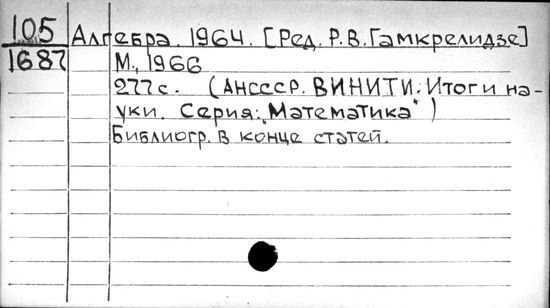 105 Алгебра. 1964. [Ред. Р.В. Гамкрелидзе]
1687 М., 1966
277 с. (АНСССР. ВИНИТИ. Итоги на-
уки. Серия: "Математика")
Библиогр. в конце статей.